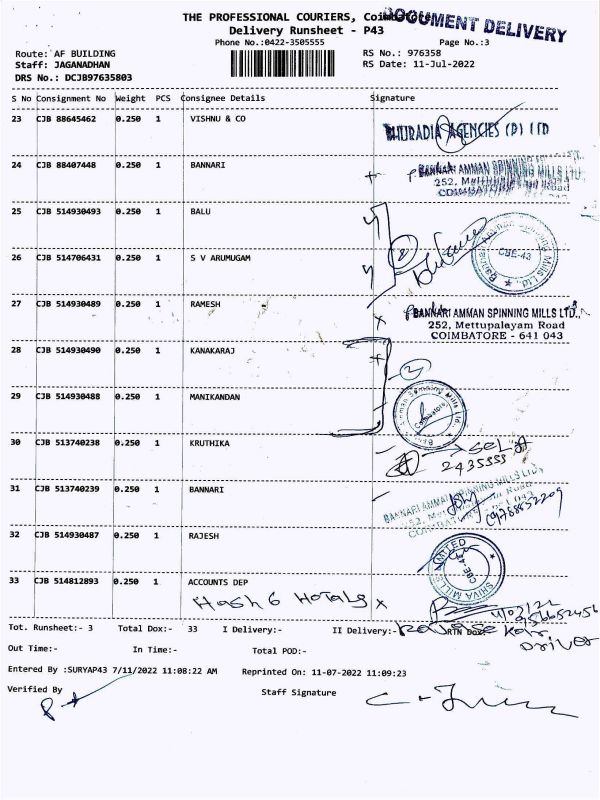 THE PROFESSIONAL COURIERS, Coimbatore
DOCUMENT DELIVERY
Delivery Runsheet - P43
Phone No.:0422-3505555 Page No.:3
Route: AF BUILDING RS No.: 976358
Staff: JAGANADHAN RS Date: 11-Jul-2022
DRS No.: DCJB97635803
S No Consignment No Weight PCS Consignee Details Signature
23 CJB 88645462 0.250 1 VISHNU & CO
BHURADIA AGENCIES (P) LTD
24 CJB 88407448 0.250 1 BANNARI
BANNARI AMMAN SPINNING MILLS LTD.,
252, Mettupalayam Road
COIMBATORE
25 CJB 514930493 0.250 1 BALU
Bannari Amman Spinning Mills Ltd.,
CBE-43
26 CJB 514706431 0.250 1 S V ARUMUGAM
27 CJB 514930489 0.250 1 RAMESH
BANNARI AMMAN SPINNING MILLS LTD.,
252, Mettupalayam Road
COIMBATORE - 641 043
28 CJB 514930490 0.250 1 KANAKARAJ
29 CJB 514930488 0.250 1 MANIKANDAN
Bannari Amman Spinning Mills Ltd
Coimbatore
30 CJB 513740238 0.250 1 KRUTHIKA
2435555
31 CJB 513740239 0.250 1 BANNARI
BANNARI AMMAN SPINNING MILLS LTD.,
252, Mettupalayam Road
32 CJB 514930487 0.250 1 RAJESH
SHIVA MILLS LIMITED
33 CJB 514812893 0.250 1 ACCOUNTS DEP
Hash 6 Hotals x
Tot. Runsheet:- 3 Total Dox:- 33 I Delivery:- II Delivery:- RTN Dox:
Driver
Out Time:- In Time:- Total POD:-
Entered By :SURYAP43 7/11/2022 11:08:22 AM Reprinted On: 11-07-2022 11:09:23
Verified By Staff Signature